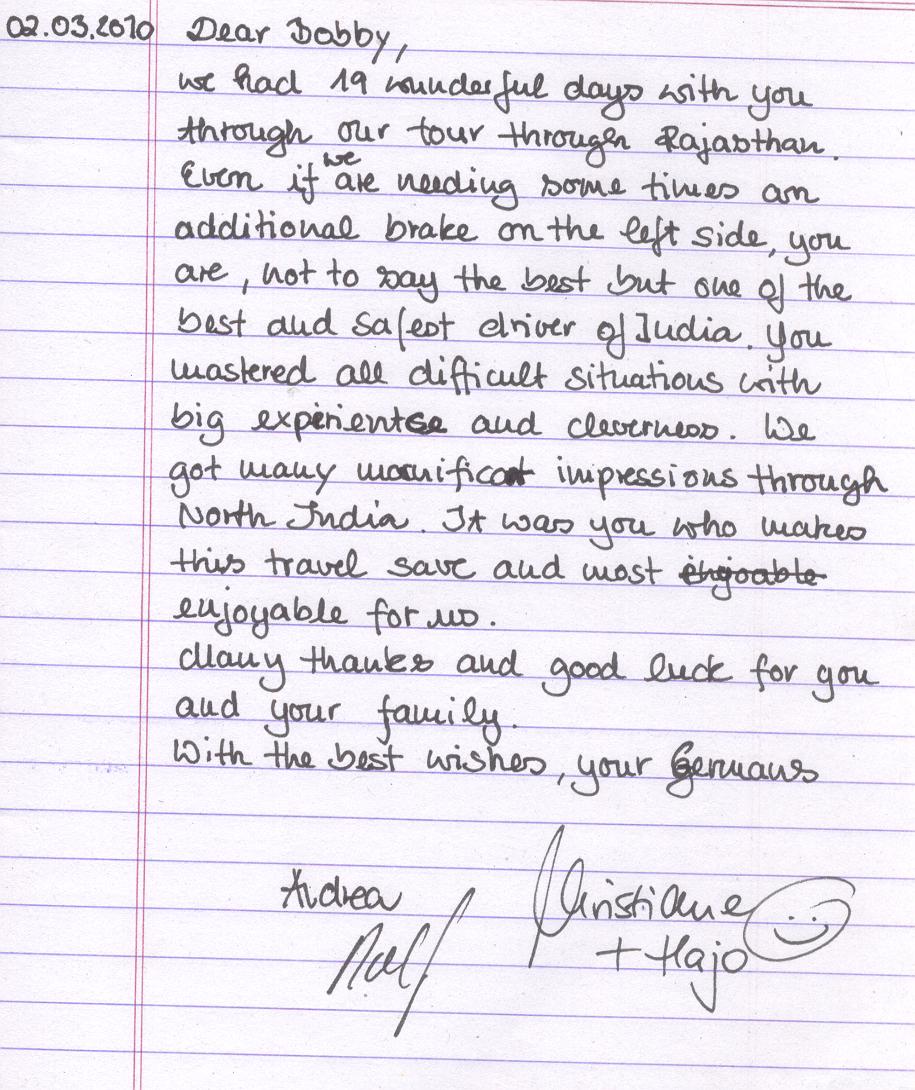 02.03.2010 Dear Bobby,
we had 19 wunderful days with you
through our tour through Rajasthan.
Even if we are needing some times an
additional brake on the left side, you
are, not to say the best but one of the
best and safest driver of India. You
mastered all difficult situations with
big experientse and cleverness. We
got many manificant impressions through
North India. It was you who makes
this travel save and most enjoable
enjoyable for us.
Many thanks and good luck for you
and your family.
With the best wishes, your Germans
Andrea
Christiane
Ralf
+ Hajo